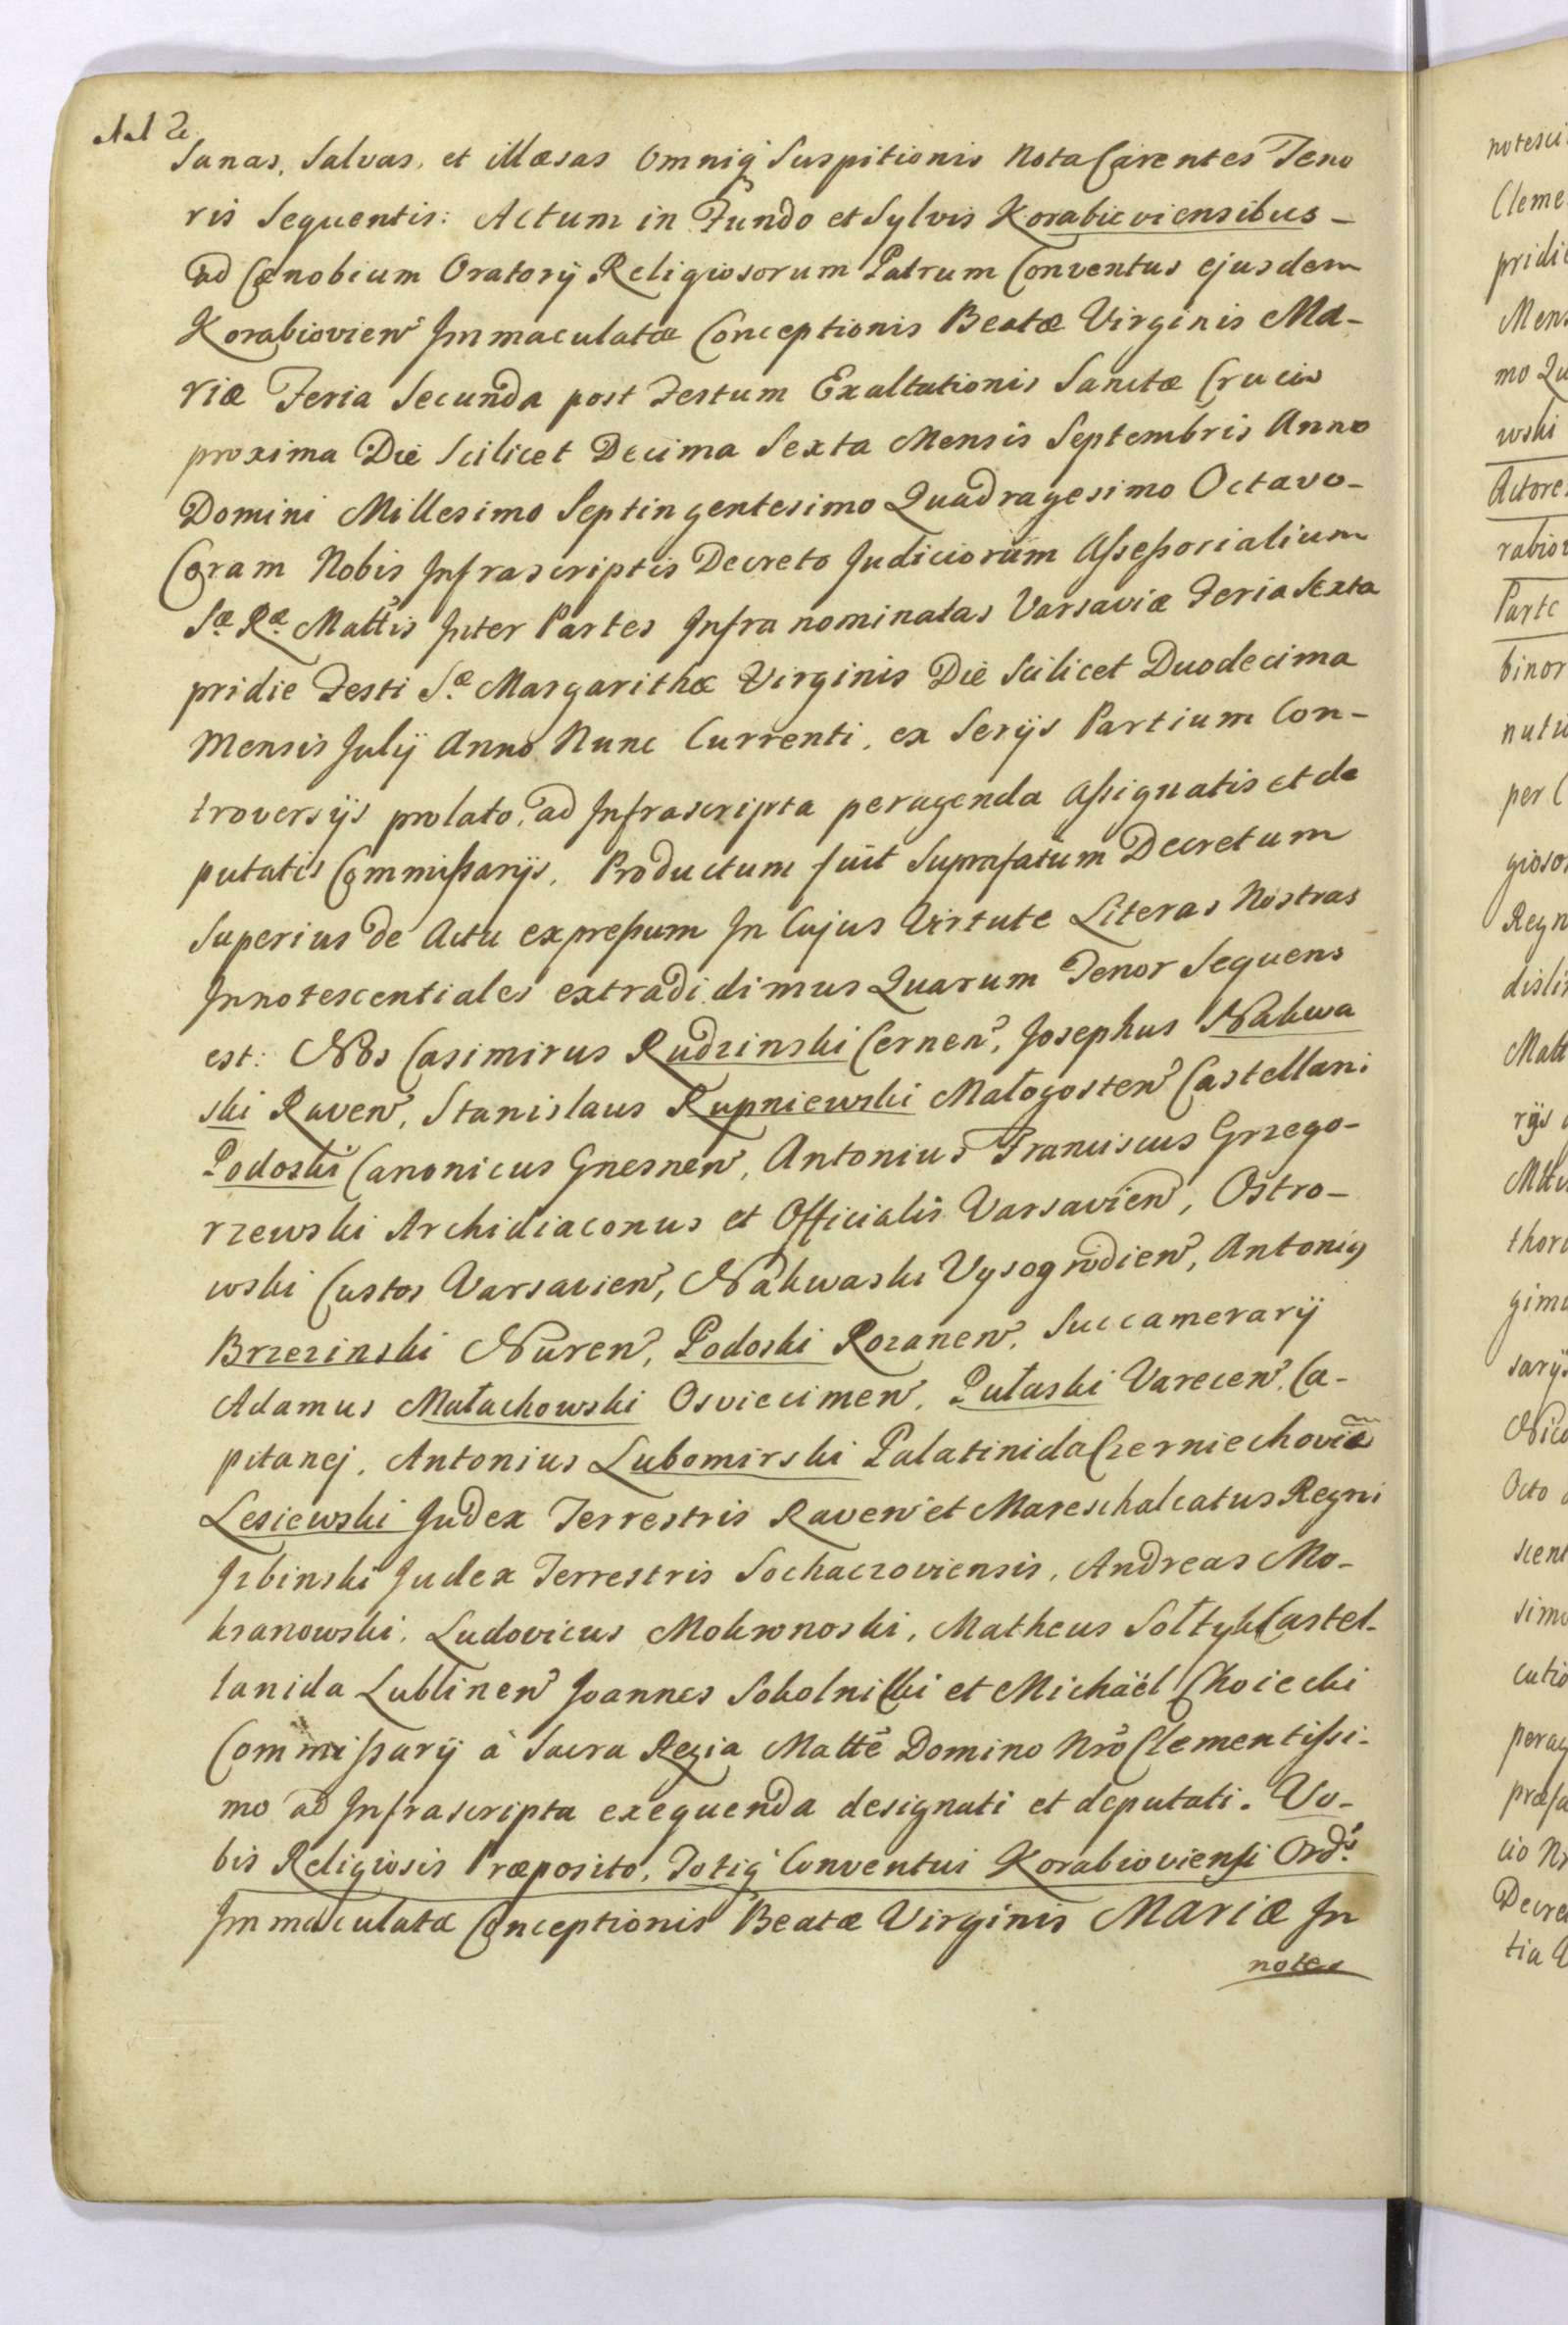 112
Sanas, Salvas, et illæsas Omniq̃ Suspitionis Nota Carentes Teno
ris Sequentis: Actum in Fundo et Sylvis Korabieviensibus –
ad Cænobium Oratorij Religiosorum Patrum Conventus ejusdem
Korabiovien̄ Immaculatæ Conceptionis Beatæ Virginis Ma-
riæ Feria Secunda post Festum Exaltationis Sanctæ Crucis
proxima Die Scilicet Decima Sexta Mensis Septembris Anno
Domini Millesimo Septingentesimo Quadragesimo Octavo –
Coram Nobis Infrascriptis Decreto Judiciorum Assessorialium
Sæ Ræ Mattis Inter Partes Infra nominatas Varsaviæ Feria Sexta
pridie Festi Sæ Margarithæ Virginis Die Scilicet Duodecima
Mensis Julij Anno Nunc Currenti, ex Serijs Partium Con-
troversijs prolato, ad Infrascripta peragenda Assignatis et de
putatis Commissarijs, Productum fuit Suprafatum Decretum
Superius de Actu expressum In Cujus Virtute Literas Nostras
Innotescentiales extradidimus Quarum Tenor Sequens
est: Nos Casimirus Rudzinski Cernen̄, Josephus Nakwa
ski Raven̄, Stanislaus Rupniewski Małogosten̄ Castellani
Podoski Canonicus Gnesnen̄, Antonius Franciscus Grzego-
rzewski Archidiaconus et Officialis Varsavien̄, Ostro-
wski Custos Varsavien̄, Nakwaski Vysogrodien̄, Antonig
Brzezinski Nuren̄, Podoski Rozanen̄, Succamerarij
Adamus Małachowski Osviecimen̄, Pułaski Varecen̄, Ca-
pitanej, Antonius Lubomirski Palatinida Czerniechoviæ
Lesiewski Judex Terrestris Raven̄ et Mareschalcatus Regni
Jzbinski Judex Terrestris Sochaczoviensis, Andreas Mo-
kranowski, Ludovicus Mokronoski, Matheus Sołtyk Castel-
lanida Lublinen̄ Joannes Sokolnicki et Michaël Choiecki
Commissarij à Sacra Regia Mattē Domino Nrõ Clementissi-
mo ad Infrascripta exequenda designati et deputati. Vo-
bis Religiosis Præposito, Totiq̃ Conventui Korabioviensi Ordṡ
Immaculatæ Conceptionis Beatæ Virginis MARIÆ In
notes
notesci
Cleme
pridie
Mens
mo Qu
wski
Actore
rabiov
Parte
binor
nutu
per C
gioso
Regn
disti
Matt
rijs
Mtti
thori
gimu
sarijs
Nico
Octo
scent
simo
cutio
perag
præfa
cio Nr
Decre
tia